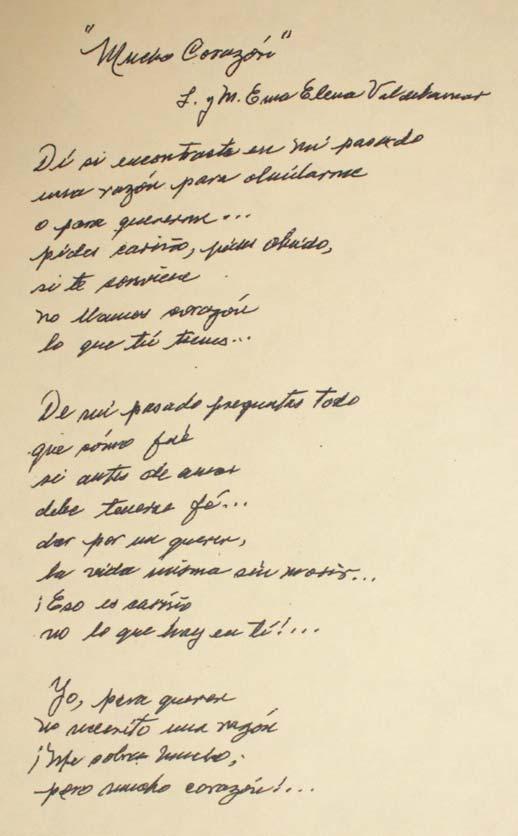 "Mucho Corazón"
L. y M. Ema Elena Valdelamar
Dí si encontraste en mi pasado
una razón para olvidarme
o para quererme...
pides cariño, pides olvido,
si te conviene
no llames corazón
lo que tú tienes...
De mi pasado preguntas todo
que cómo fué
si antes de amar
debe tenerse fé...
dar por un querer,
la vida misma sin morir...
¡Eso es cariño
no lo que hay en tí!...
Yo, para querer
no necesito una razón
¡Me sobra mucho,
pero mucho corazón!...